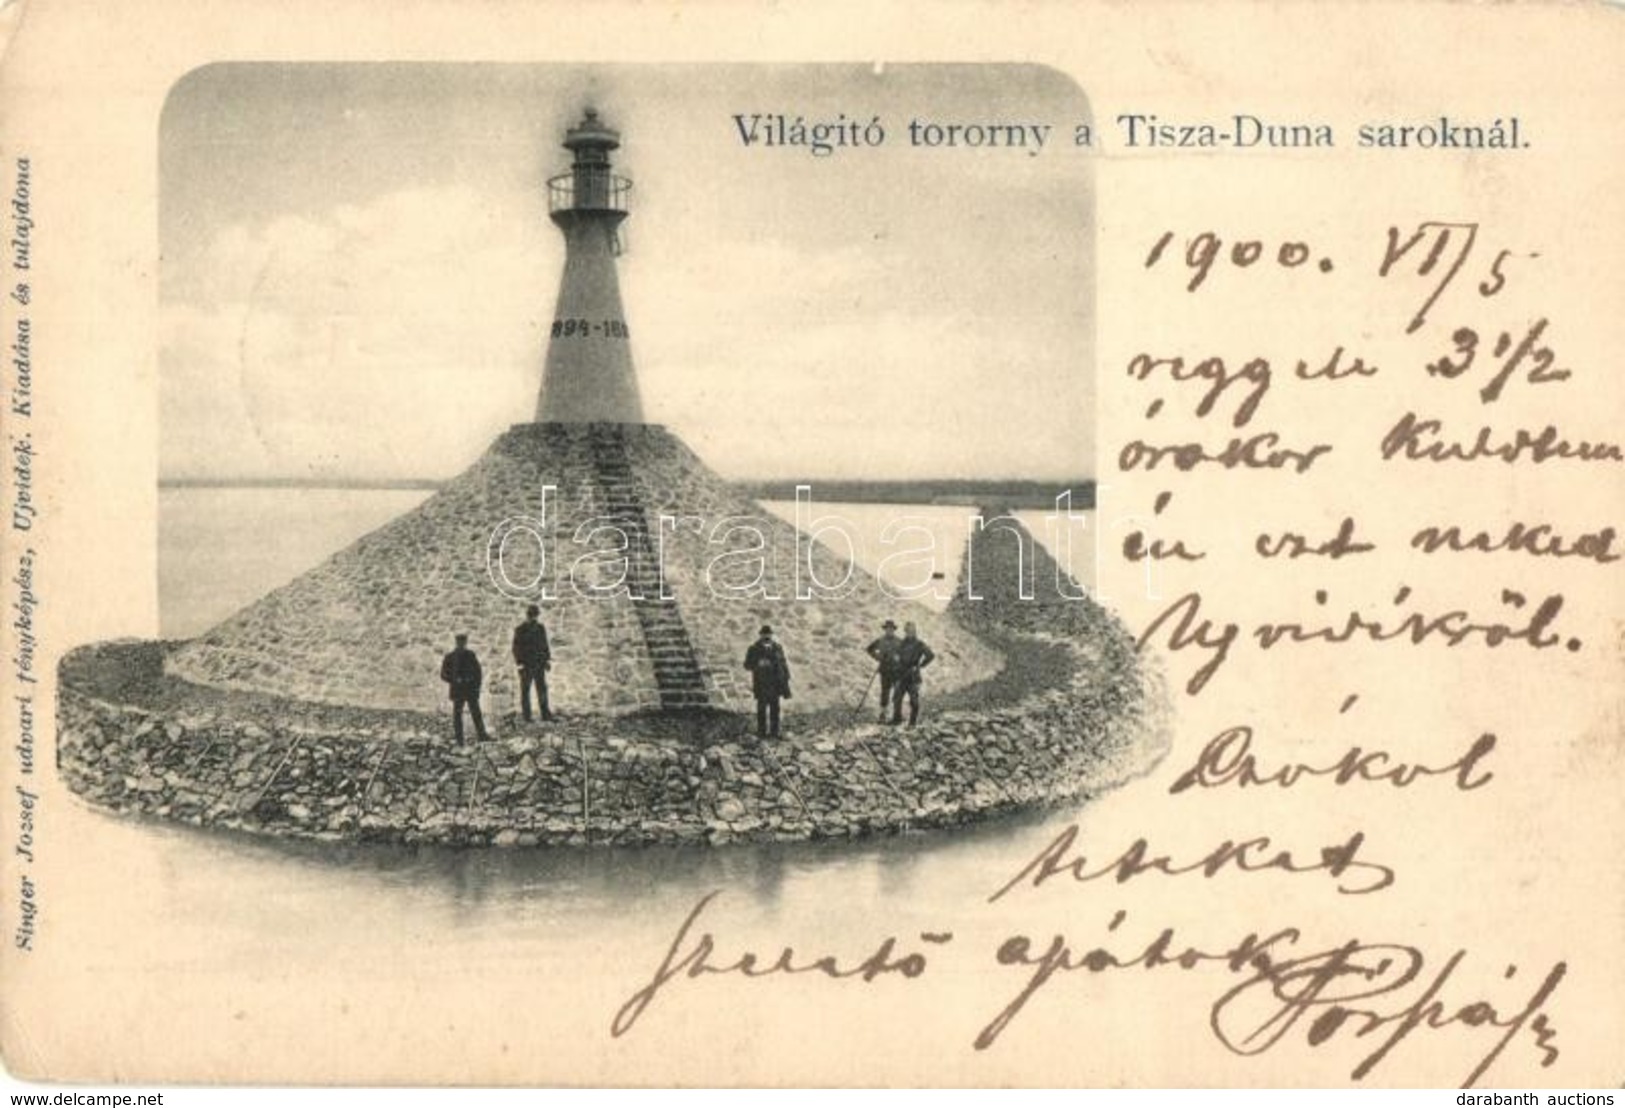 Világitó tororny a Tisza-Duna saroknál.
1900. VI/5
reggele 3 1/2
órakor küldtem
én ezt neked
Ujvidékről.
Csókol
titeket
szerető apátok
Singer József udvari fényképész, Ujvidék. Kiadása és tulajdona
894-18
darabanth
www.delcampe.net
darabanth auctions